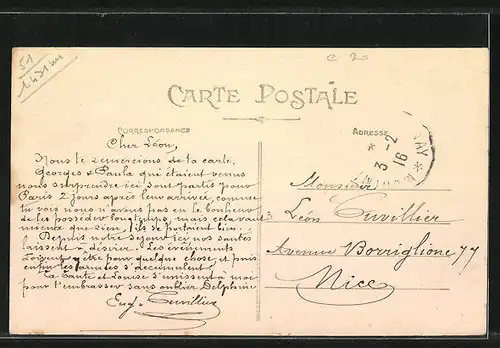 51
CARTE POSTALE
CORRESPONDANCE
ADRESSE
3 - 2
16
Cher Léon,
Nous te remercions de ta carte.
Georges & Paula qui étaient venus
nous surprendre ici sont partis pour
Paris 2 jours après leur arrivée, comme
tu vois nous n'avons pas eu le bonheur
de les posséder longtemps, mais cela vaut
mieux que rien, ils se portaient bien.
Depuis notre séjour ici nos santés
laissent à désirer. Les événements
doivent y être pour quelque chose, et puis
enfin les années s'accumulent.
La Tante et Louise s'unissent à moi
pour t'embrasser sans oublier Delphine
Eug. Cuvillier
Monsieur
Léon Cuvillier
Avenue Borriglione 77
Nice